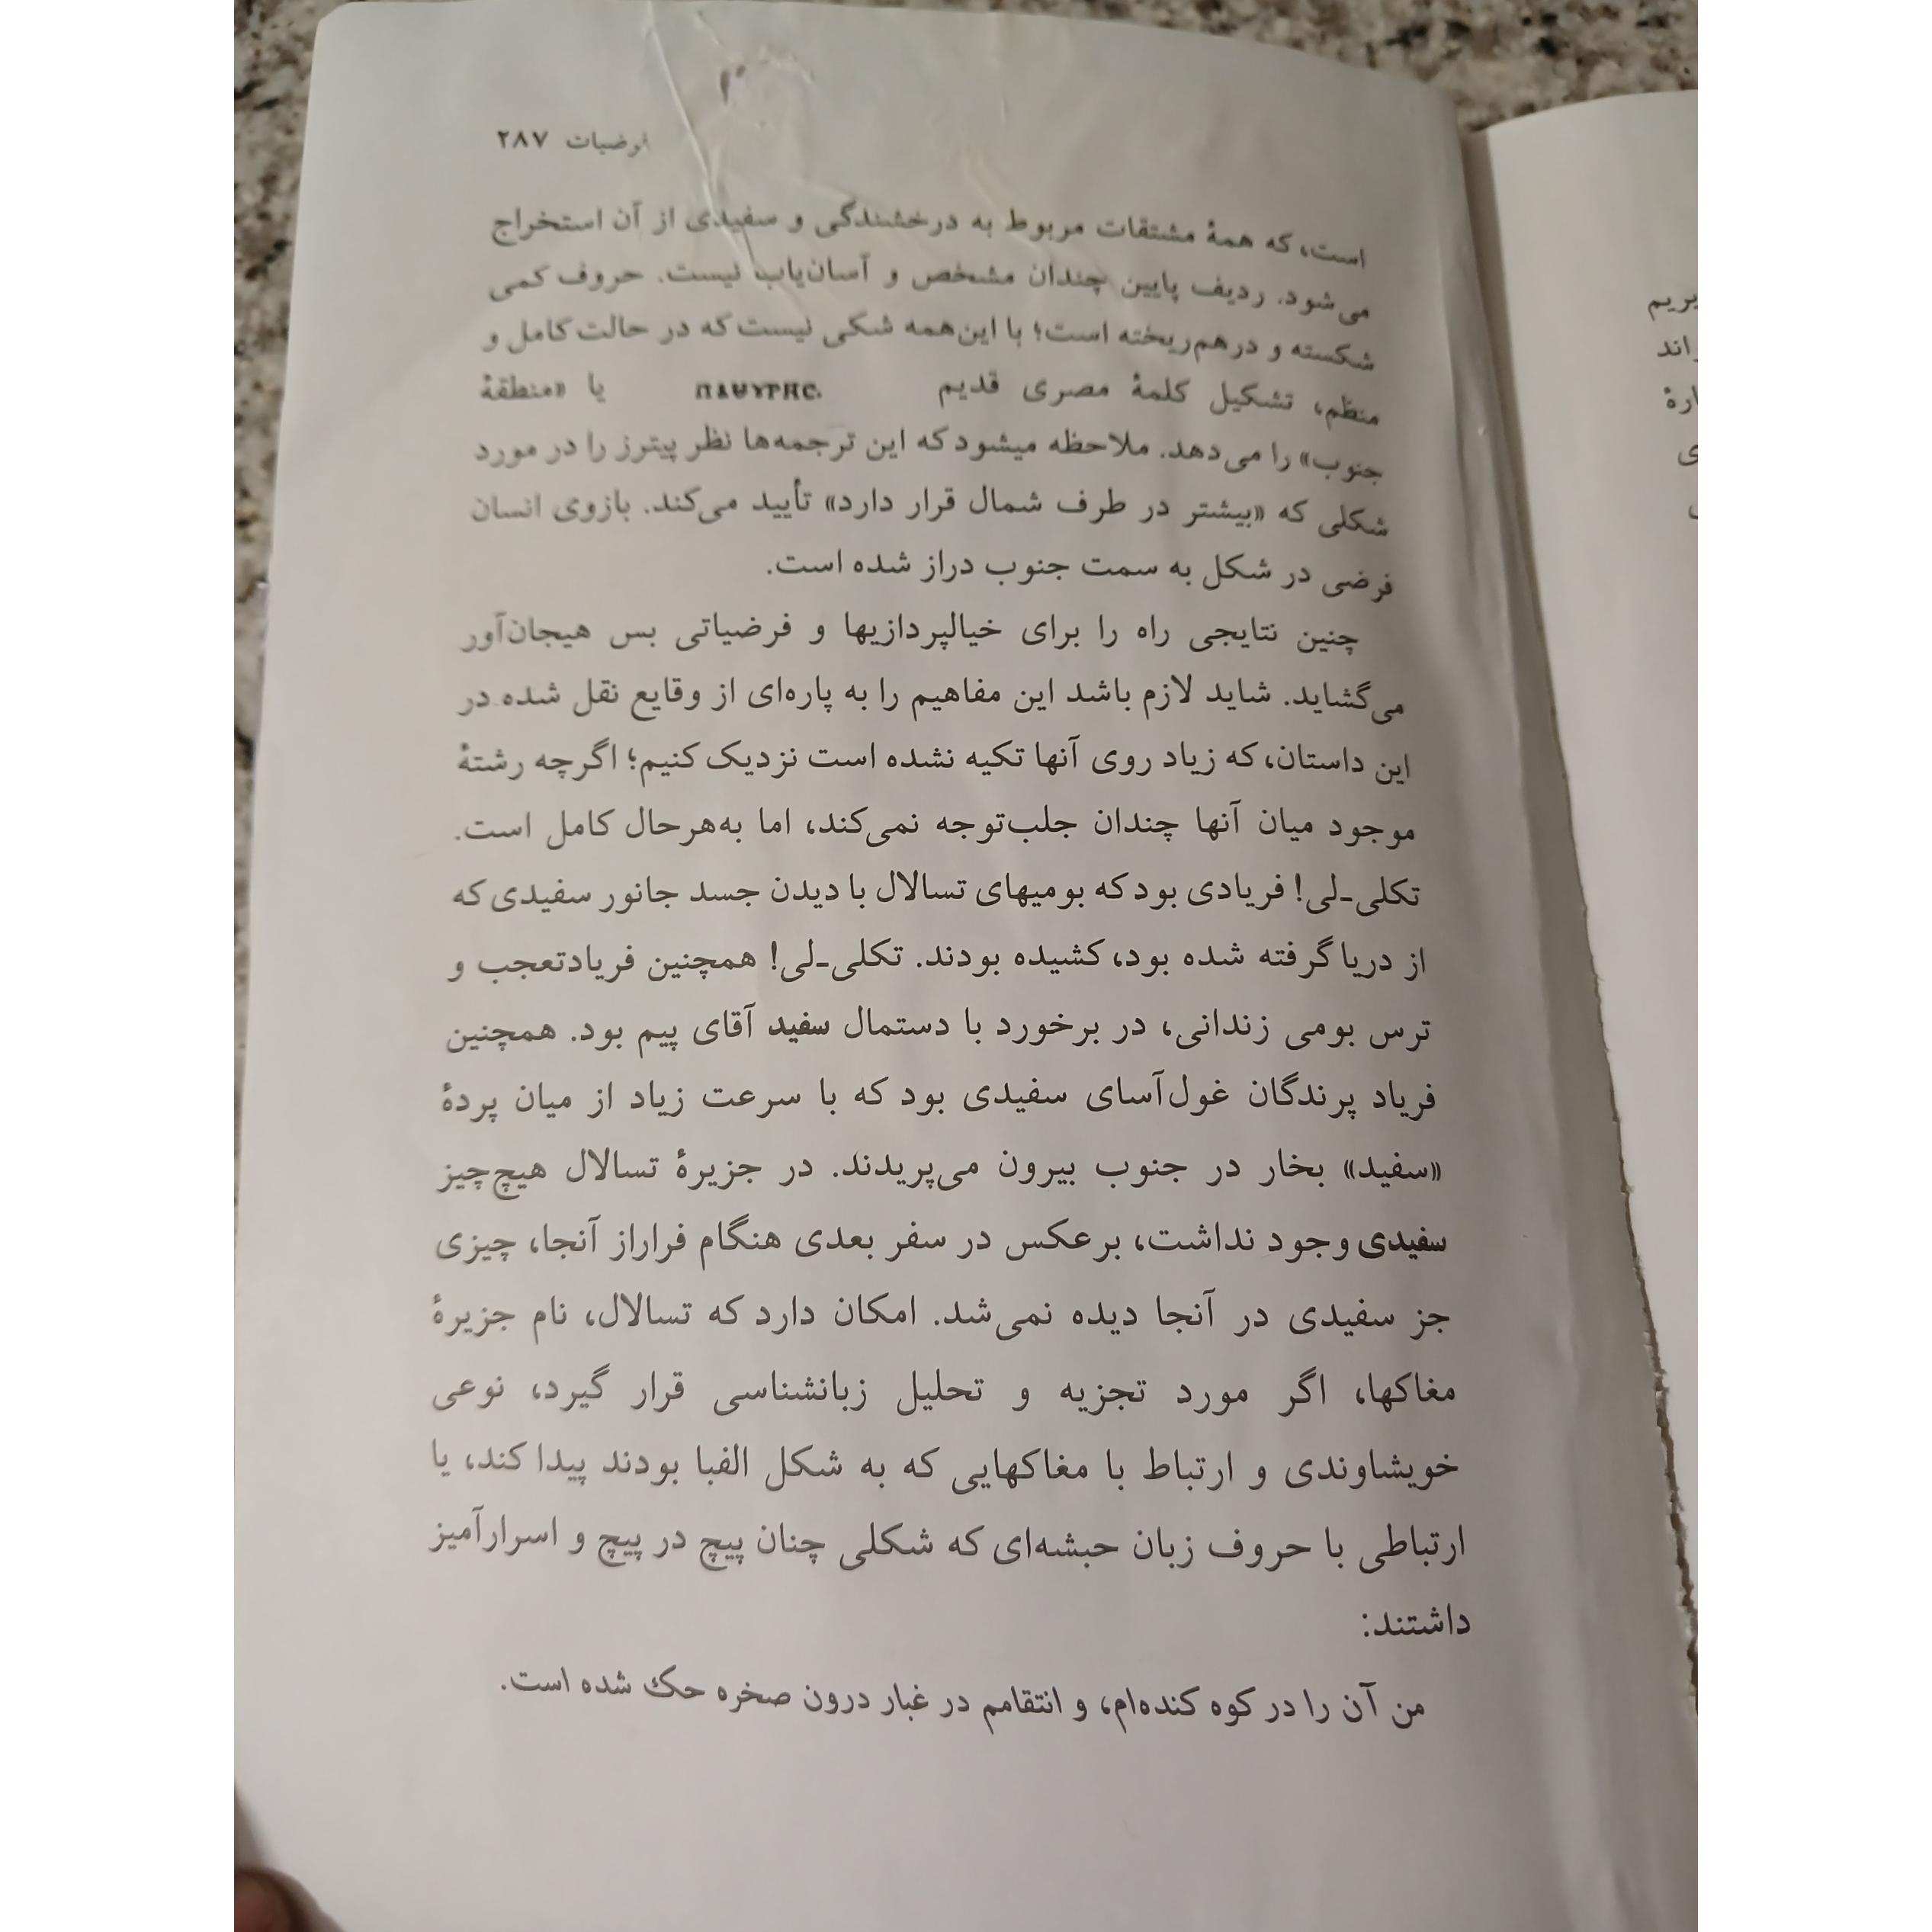 فرضیات ۲۸۷
است، که همهٔ مشتقات مربوط به درخشندگی و سفیدی از آن استخراج
می‌شود. ردیف پایین چندان مشخص و آسان‌یاب نیست. حروف کمی
شکسته و درهم‌ریخته است؛ با این‌همه شکی نیست که در حالت کامل و
منظم، تشکیل کلمهٔ مصری قدیم ΠΑΨΥΡΗC. یا «منطقهٔ
جنوب» را می‌دهد. ملاحظه میشود که این ترجمه‌ها نظر پیترز را در مورد
شکلی که «بیشتر در طرف شمال قرار دارد» تأیید می‌کند. بازوی انسان
فرضی در شکل به سمت جنوب دراز شده است.
چنین نتایجی راه را برای خیالپردازیها و فرضیاتی بس هیجان‌آور
می‌گشاید. شاید لازم باشد این مفاهیم را به پاره‌ای از وقایع نقل شده در
این داستان، که زیاد روی آنها تکیه نشده است نزدیک کنیم؛ اگرچه رشتهٔ
موجود میان آنها چندان جلب‌توجه نمی‌کند، اما به‌هرحال کامل است.
تکلی-لی! فریادی بود که بومیهای تسالال با دیدن جسد جانور سفیدی که
از دریا گرفته شده بود، کشیده بودند. تکلی-لی! همچنین فریادتعجب و
ترس بومی زندانی، در برخورد با دستمال سفید آقای پیم بود. همچنین
فریاد پرندگان غول‌آسای سفیدی بود که با سرعت زیاد از میان پردهٔ
«سفید» بخار در جنوب بیرون می‌پریدند. در جزیرهٔ تسالال هیچ‌چیز
سفیدی وجود نداشت، برعکس در سفر بعدی هنگام فراراز آنجا، چیزی
جز سفیدی در آنجا دیده نمی‌شد. امکان دارد که تسالال، نام جزیرهٔ
مغاکها، اگر مورد تجزیه و تحلیل زبانشناسی قرار گیرد، نوعی
خویشاوندی و ارتباط با مغاکهایی که به شکل الفبا بودند پیدا کند، یا
ارتباطی با حروف زبان حبشه‌ای که شکلی چنان پیچ در پیچ و اسرارآمیز
داشتند:
من آن را در کوه کنده‌ام، و انتقامم در غبار درون صخره حک شده است.